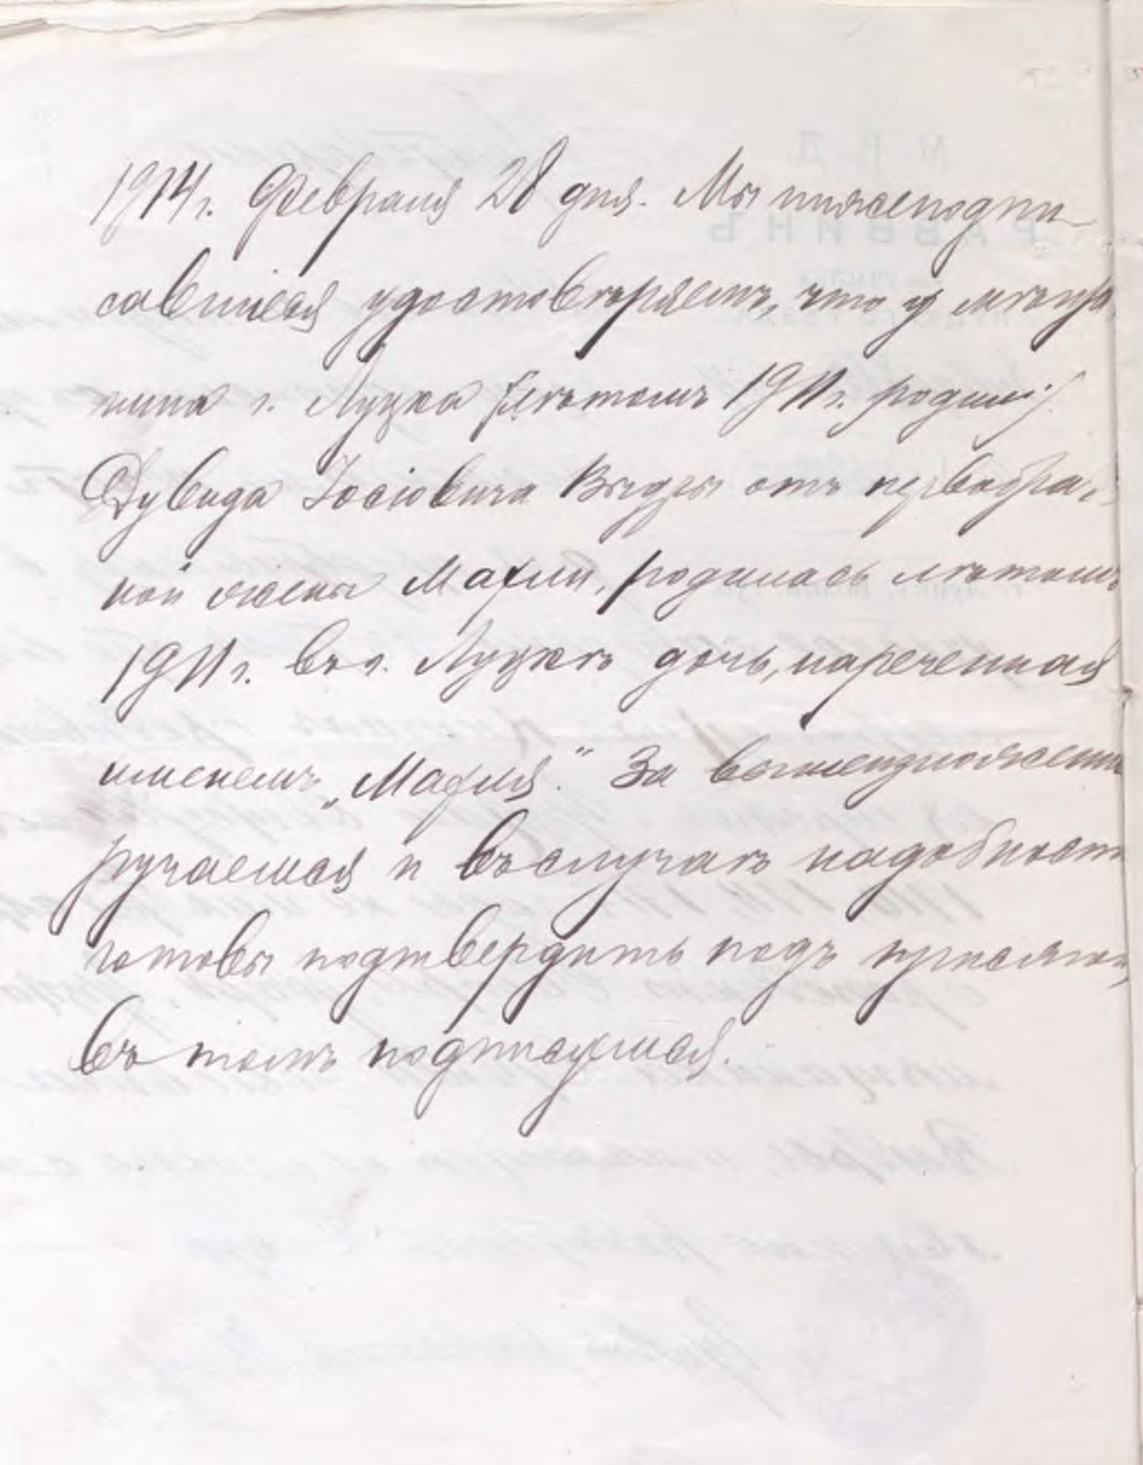 1914 г. Февраля 28 дня. Мы нижеподпи-
савшіеся удостовѣряемъ, что у мѣща
нина г. Луцка лѣтомъ 1911 г.
Дувида Іосіовича отъ первобрач
ной жены родилась лѣтомъ
1911 г. въ г. Луцкѣ дочь, нареченная
именемъ За вышеизложенн
ручаемся и въ случаѣ надобност
готовы подтвердить подъ присягой,
въ томъ подписуемся.